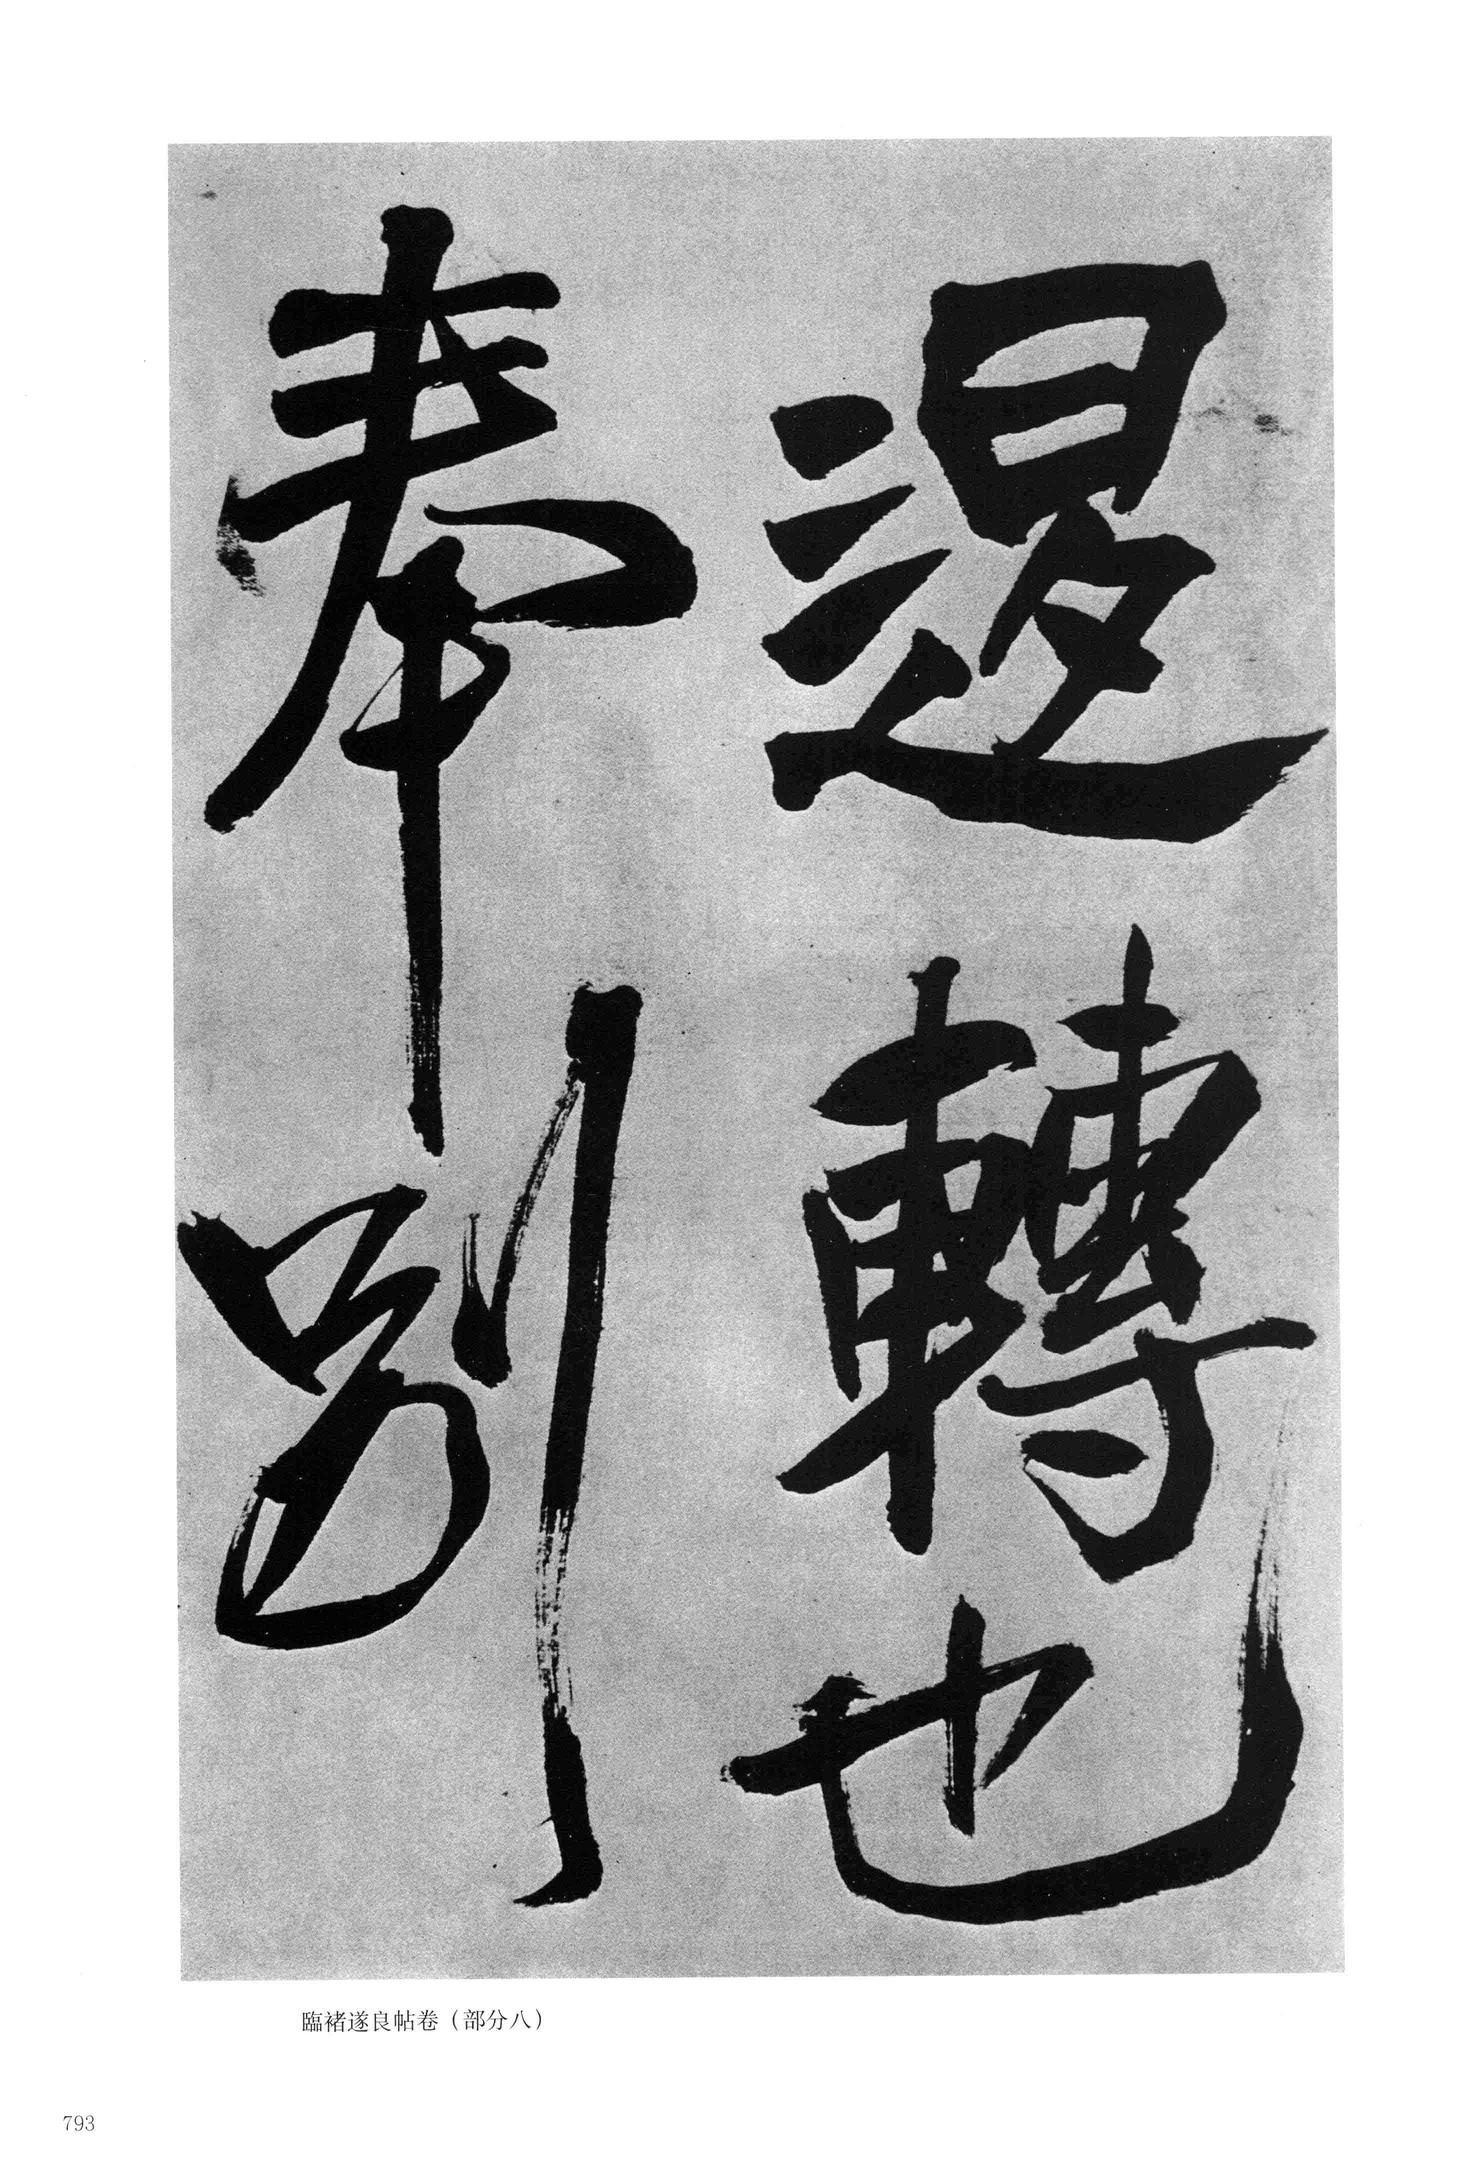 退轉也
奉別
臨褚遂良帖卷（部分八）
793